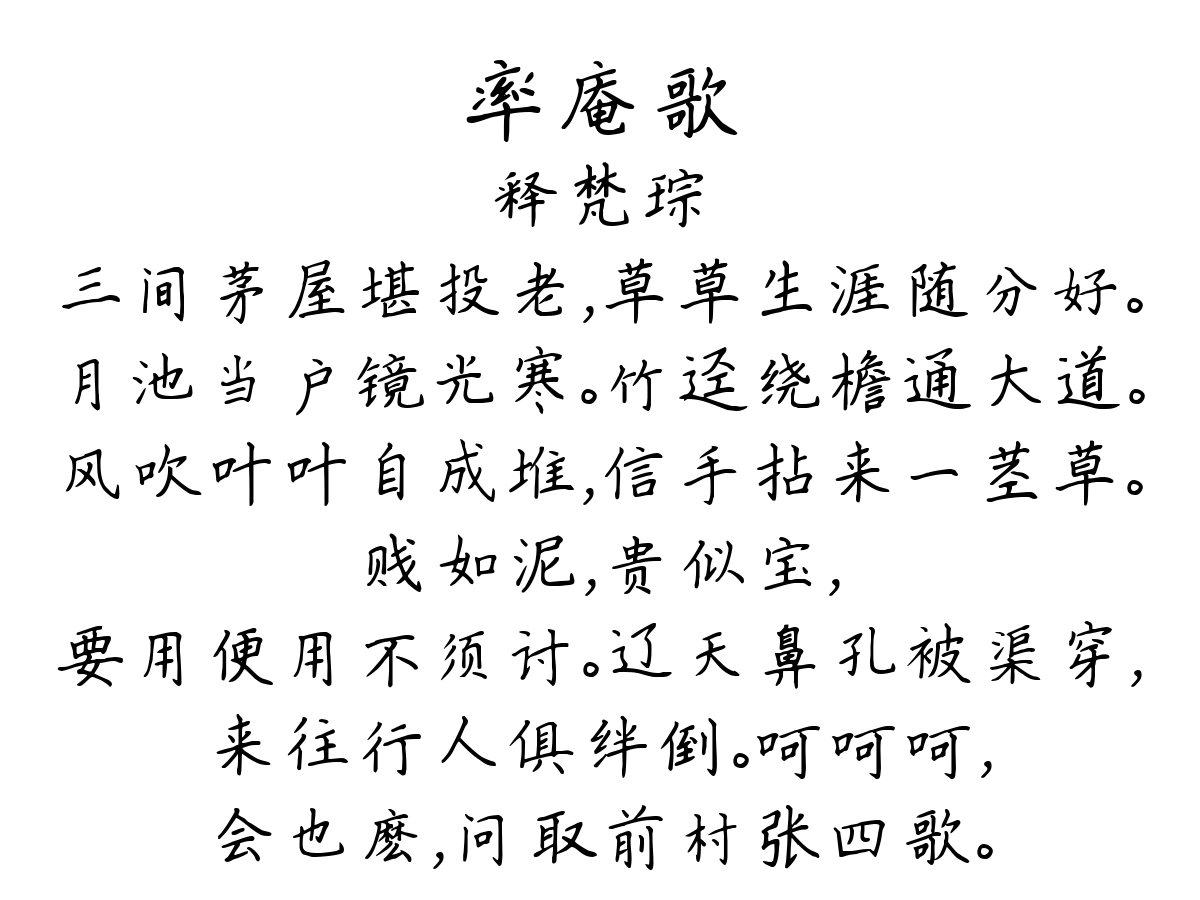 率庵歌
释梵琮
三间茅屋堪投老,草草生涯随分好。
月池当户镜光寒。竹迳绕檐通大道。
风吹叶叶自成堆,信手拈来一茎草。
贱如泥,贵似宝,
要用便用不须讨。辽天鼻孔被渠穿,
来往行人俱绊倒。呵呵呵,
会也麽,问取前村张四歌。